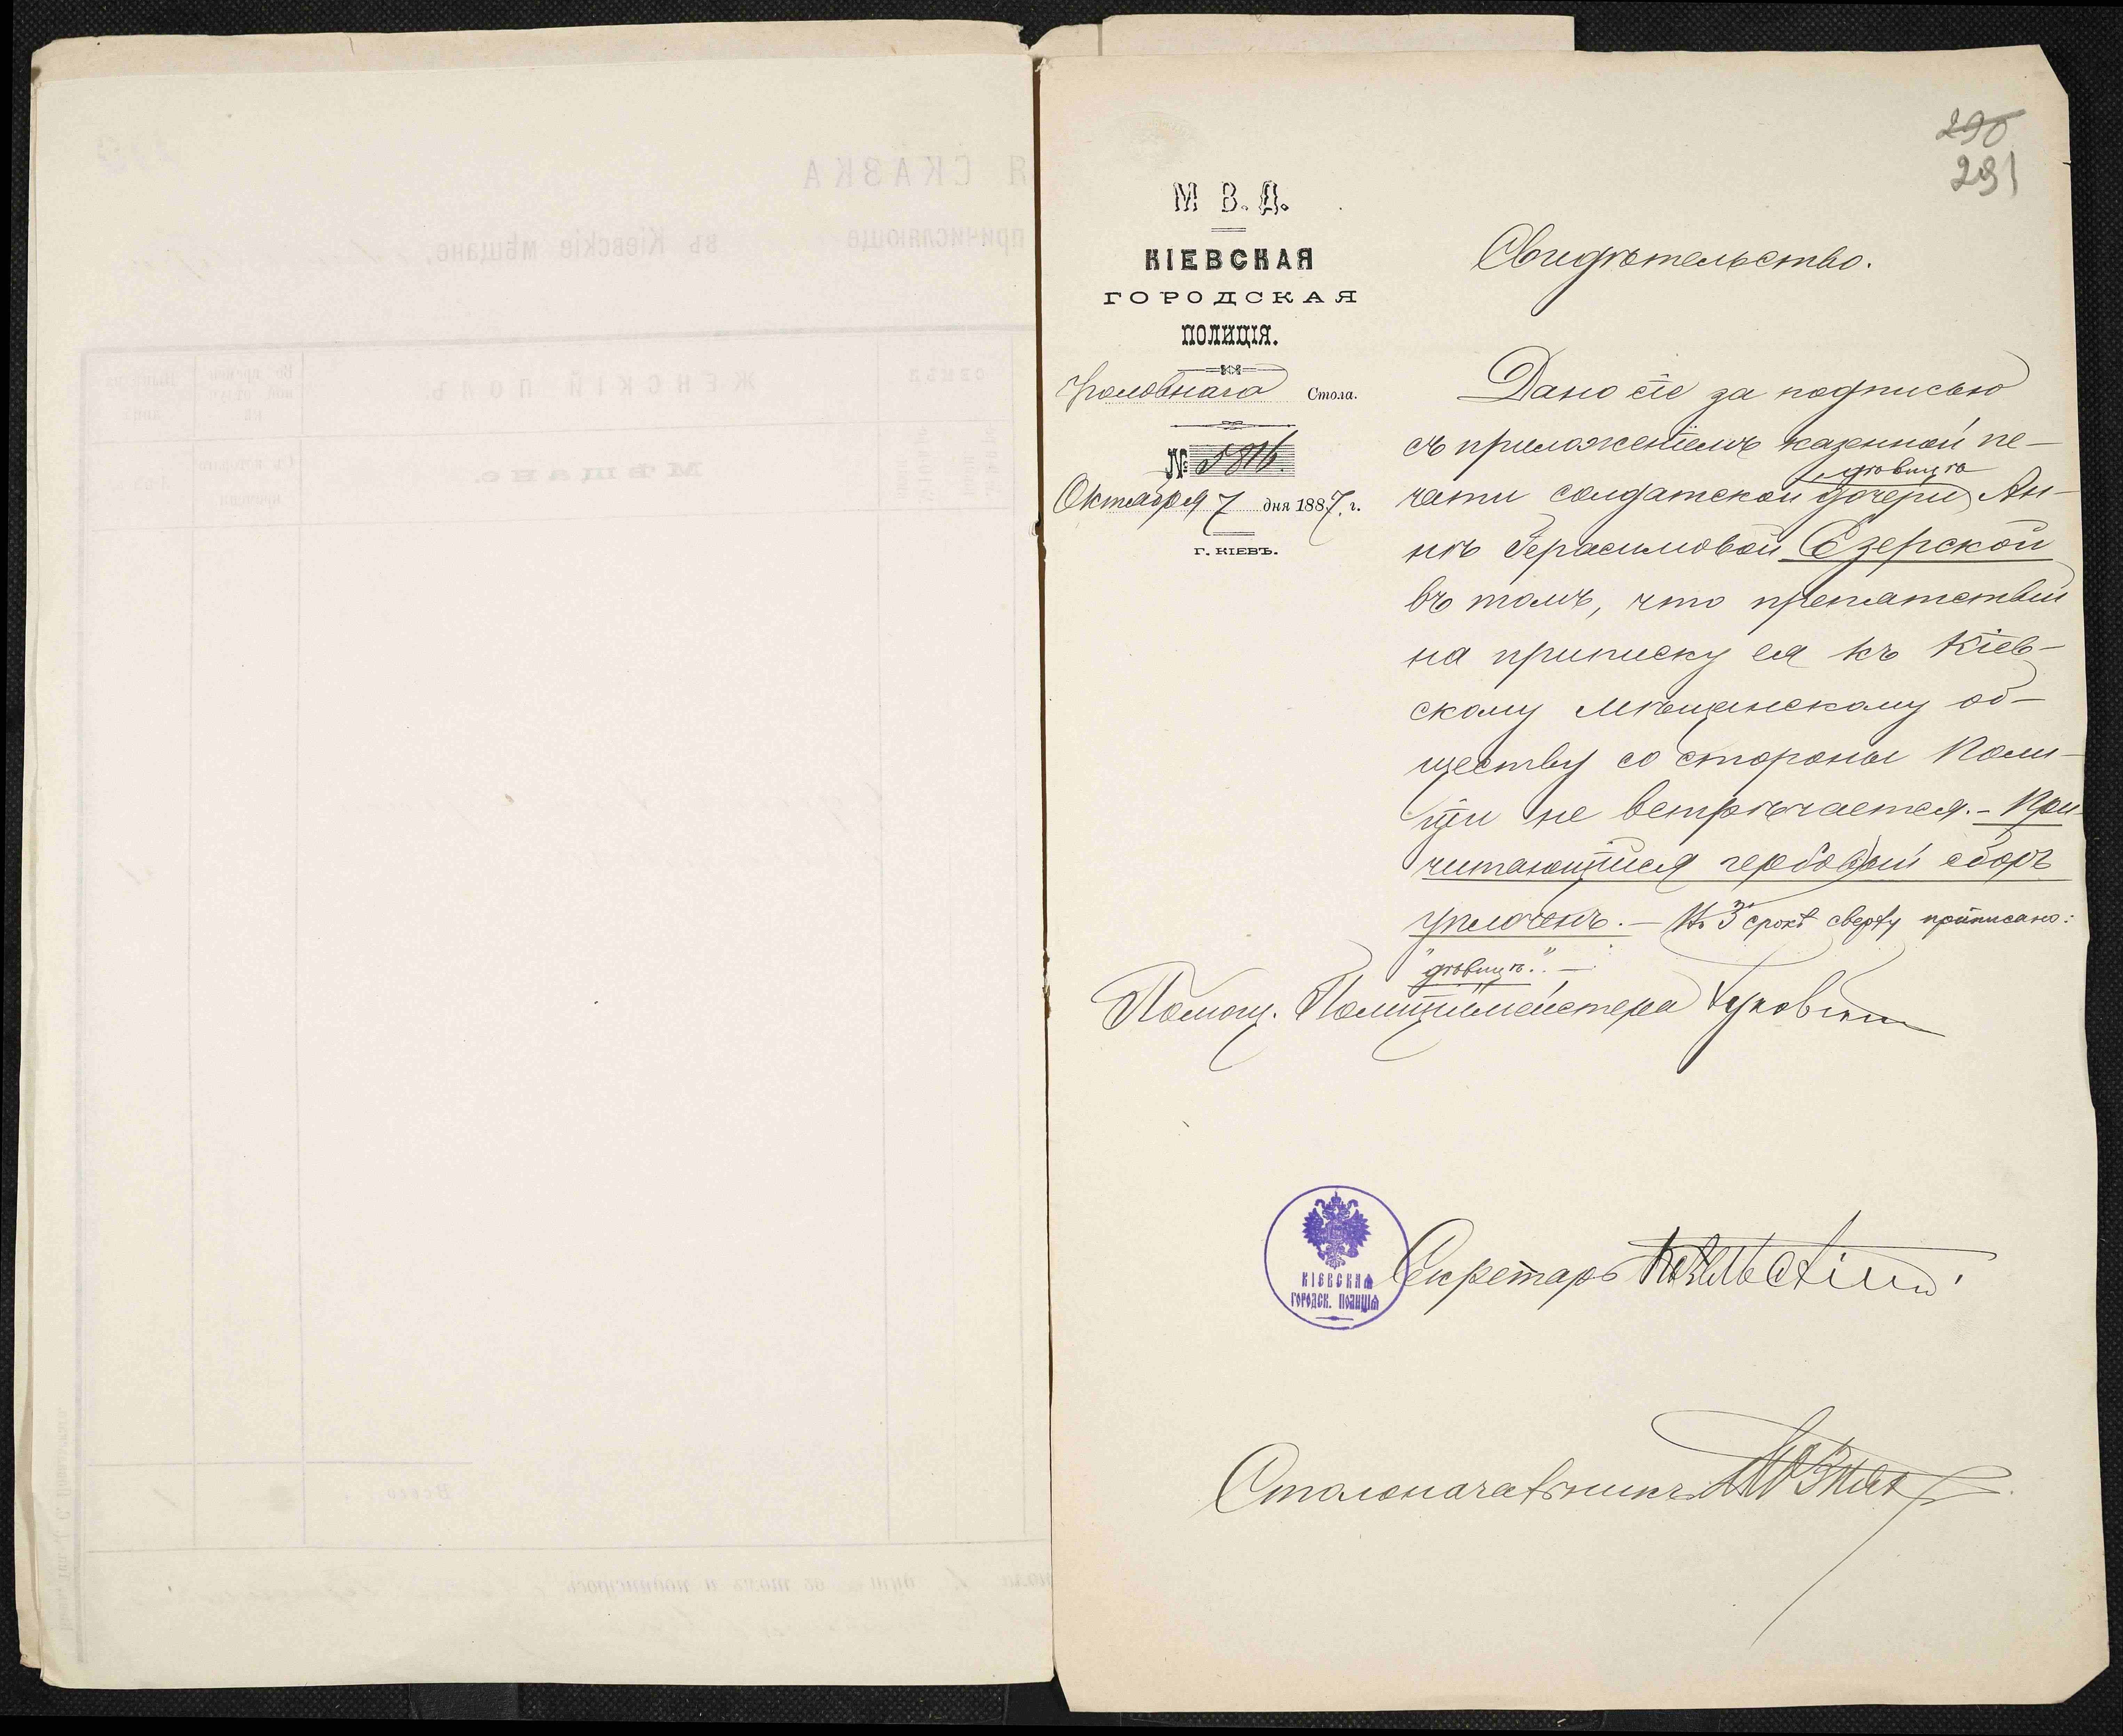 290
291
М В. Д.
КІЕВСКАЯ
ГОРОДСКАЯ
ПОЛИЦІЯ.
Уголовнаго Стола.
№ 5816.
Октября 7 дня 1887. г.
Г. КІЕВЪ.
Свидѣтельство.
Дано сіе за подписью
съ приложеніемъ казенной пе-
дѣвицѣ
чати солдатской дочери Ан-
нѣ Герасимовой Езерской
въ томъ, что препятствій
на приписку ея къ Кіев-
скому Мѣщанскому об-
ществу со стороны Поли-
ціи не встрѣчается.- При-
читающійся гербовый сборъ
уплоченъ.- Въ 3й строкѣ сверху приписано:
"дѣвицѣ".-
Помощ. Полиціймейстера
КІЕВСКАЯ
ГОРОДСК. ПОЛИЦІЯ
Секретарь
Столоначальникъ
Я СКАЗКА
причисляюще въ Кіевскіе мѣщане,
ЖЕНСКІЙ ПОЛЪ
МѢЩАНЕ.
Всего